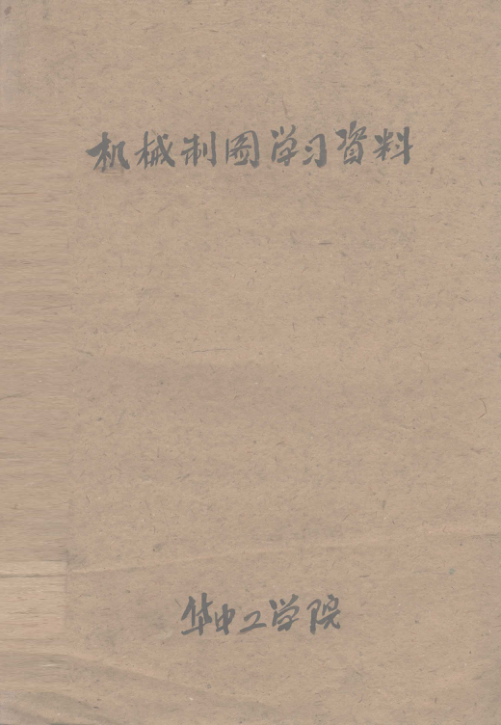 机械制图学习资料
华中工学院